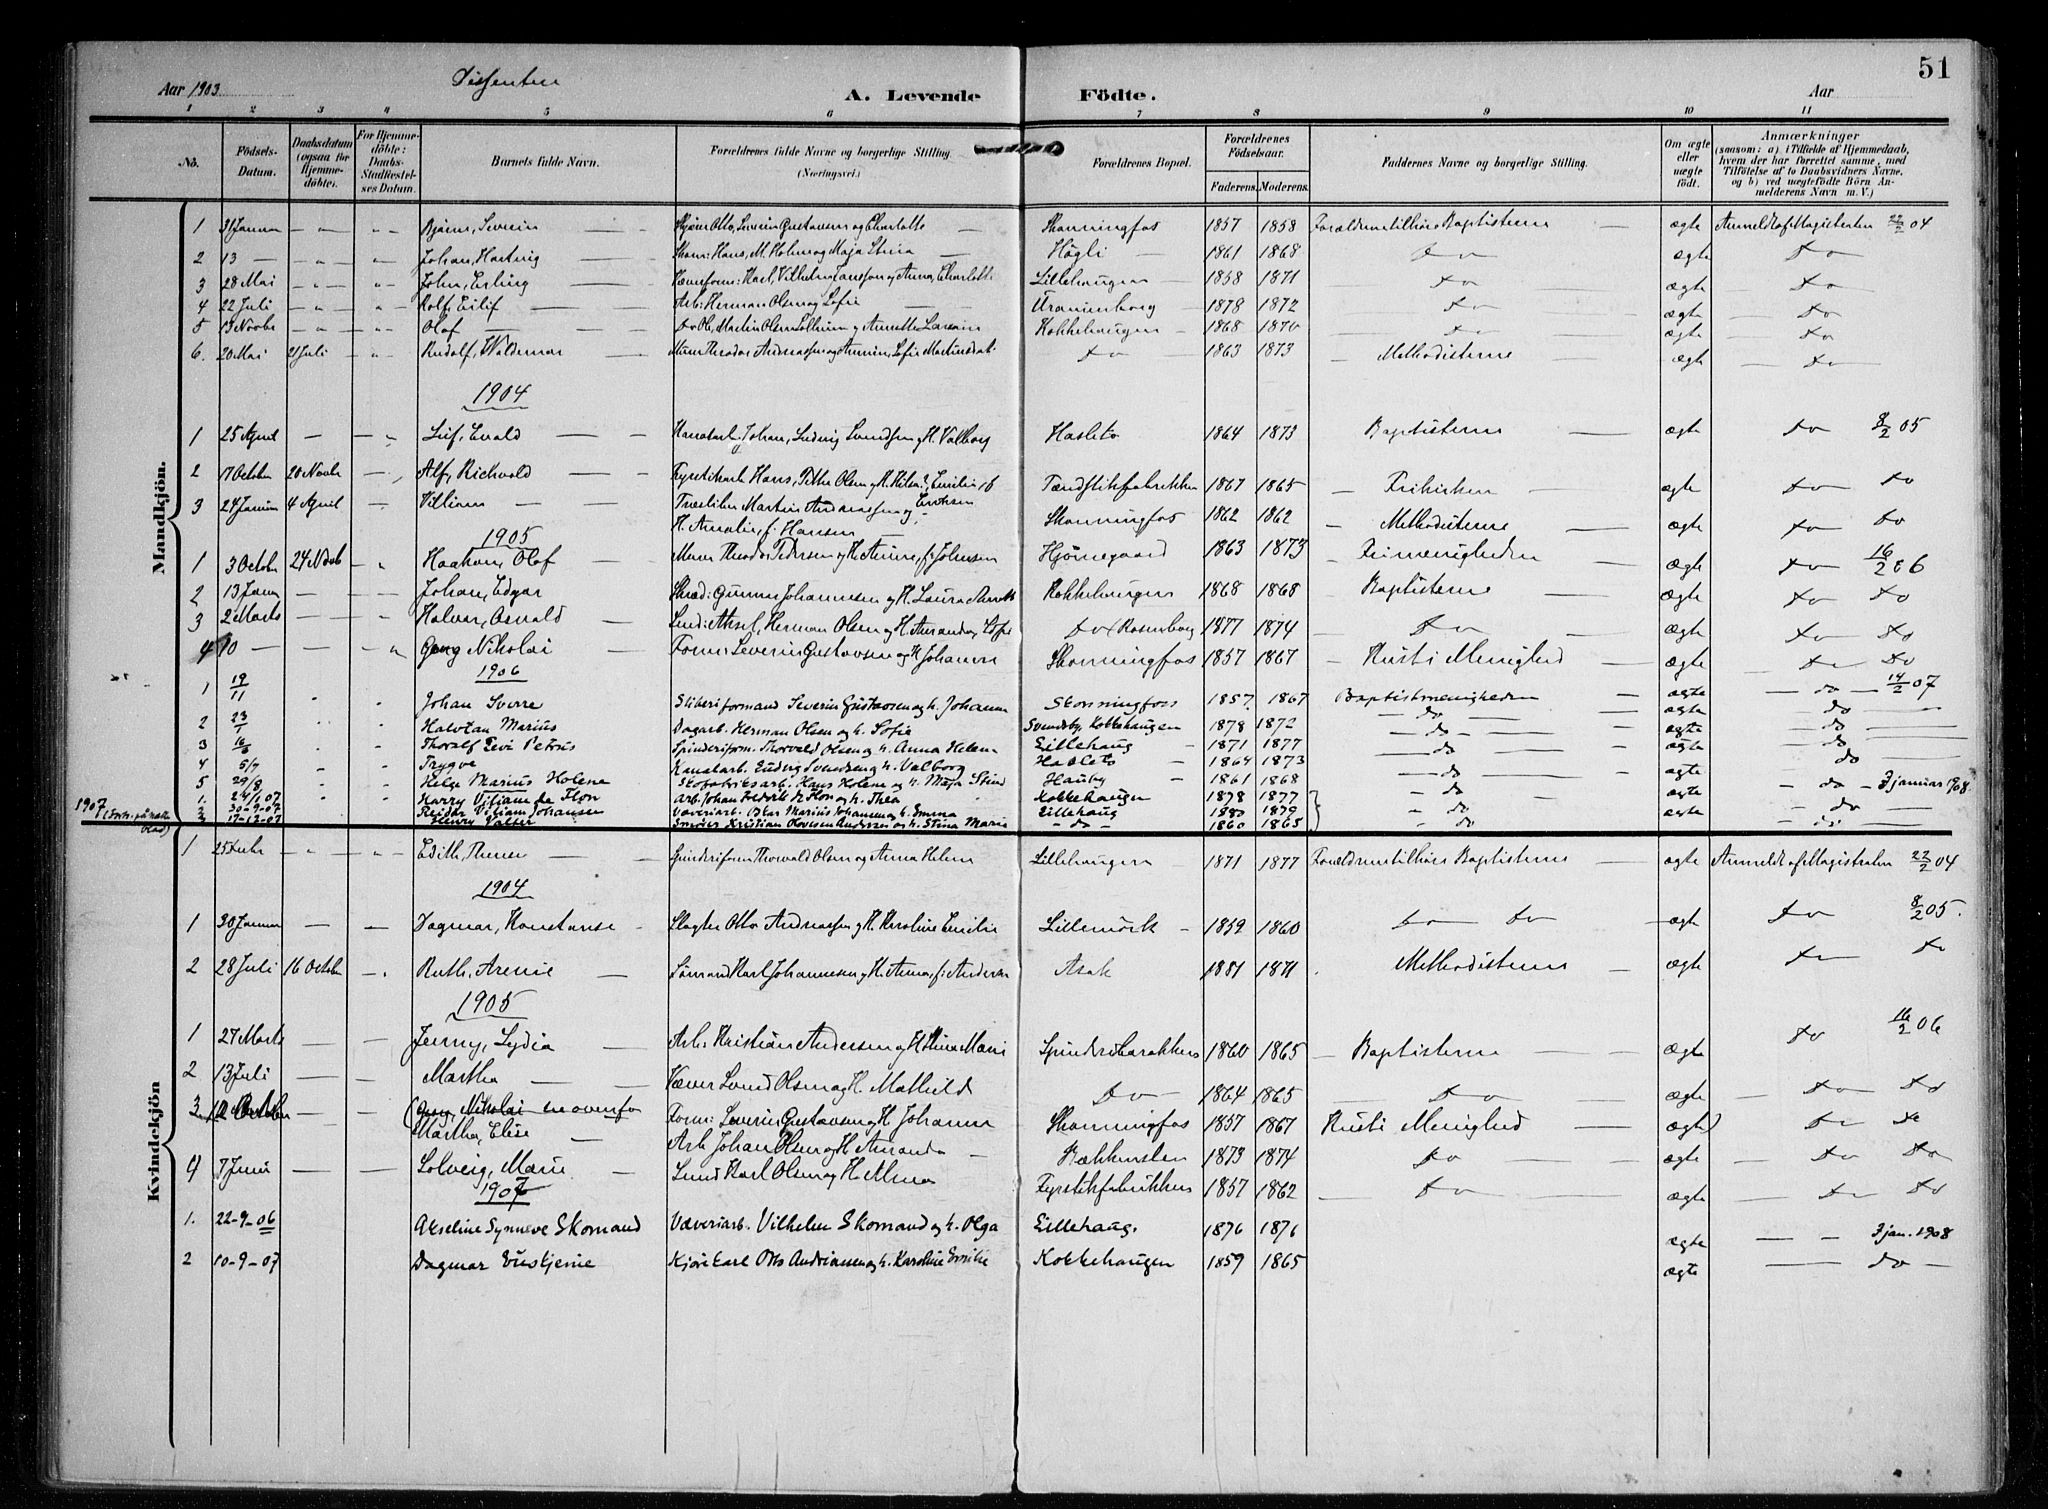 51
Aar 1903 Dissenter A. Levende Födte. Aar
1 2 3 4 5 6 7 8 9 10 11
No. Födsels-Datum. Daabsdatum (ogsaa for Hjemmedöbte). For Hjemmedöbte: Daabs-Stadfæstelses Datum. Barnets fulde Navn. Forældrenes fulde Navne og borgerlige Stilling (Næringsvei.) Forældrenes Bopæl. Forældrenes Födselsaar. Faderens. Moderens. Faddernes Navne og borgerlige Stilling. Om ægte eller uægte födt. Anmærkninger (saasom: a) i Tilfælde af Hjemmedaab, hvem der har forrettet samme, med Tilföielse af to Daabsvidners Navne, og b) ved uægtefödte Börn Anmelderens Navn m. V.)
Mandkjön.
1 31 Januar " " Bjarne, Severin Otto, Severin Gustavsen og Charlotte Skonningfos 1857 1858 Forældrene tilhöre Baptisterne ægte Anmeldt af Magistraten 22/2 04
2 13 — " " Johan, Hartvig Skom: Hans, M. Holm og Maja Stina Högli 1861 1868 Do ægte Do
3 28 Mai " " John, Erling Karl, Vilhelm Larsson og Anna, Charlotte Lillehaugen 1858 1871 Do ægte Do
4 22 Juli " " Rolf, Eilif Arb: Herman Olsen og Sofie Uranienborg 1878 1872 Do ægte Do
5 13 Novbr " " Olaf Do Ole, Martin Olsen og Anette Larsen Kokkehaugen 1868 1870 Do ægte Do
6. 20 Mai 21 Juli " Rudolf, Waldemar Murer Theodor Andreassen og Sofie Do 1863 1873 Methodisterne ægte Do
1904
1 25 April — " Leif, Evald Johan, Ludvig Svendsen og H. Valborg Hasleto 1864 1873 Baptisterne ægte Do 8/2 05
2 17 October 20 Novbr — Alf, Richvald Hans, Olsen og H. Emilie Tændstikfabrikken 1867 1865 Frikirken ægte Do Do
3 24 Januar 4 April — Villiam Martin Andreassen og H. Amalie, f: Hansen Skonningfos 1862 1862 Methodisterne ægte Do Do
1905
1 3 October 24 Novb " Haakon, Olaf Murer Theodor Pedersen og H. Anna, f: Johnsen Hjørnegaard 1863 1873 Frimenigheden ægte Do 16/2 06
2 13 Janu — " Johan, Edgar Skræd: Gunnar Johannesen og H. Laura Kokkehaugen 1868 1868 Baptisterne ægte Do Do
3 2 Marts — " Halvor, Osvald Smed: Aksel, Herman Olsen og H. Amanda, Sofie Do Rosenborg 1877 1874 Do ægte Do Do
4 10 — — " Georg Nikolai Form: Severin Gustavsen og H Johanne Skonningfos 1857 1867 Kristi Menighed ægte Do Do
1906
1 19/11 " " Johan Sverre Sliberiformand Severin Gustavsen og h. Johanna Skonningfoss 1857 1867 Baptistmenigheden ægte do 14/2 07
2 23/1 " " Halvdan Marius Dagarb. Herman Olsen og h. Sofie Svendsby, Kokkehaugen 1878 1872 do ægte do
3 16/3 " " Thoralf Levi Petrus Spinderiform. Thorvald Olsen og h. Anna Helene Lillehaug 1871 1877 do ægte do
4 5/7 " " Trygve Kanalarb. Ludvig Svendsen og h. Valborg Hasleto 1864 1873 do ægte do
5 29/8 " " Helge Marius Holene Skofabriksarb. Hans Holene og h. Maja Stina Hauby 1861 1868 do ægte do
1907 (Forts. på næste blad) 1. 24/1 07 " " Harry Viljam de Flon Arb. Johan Fredrik de Flon og h. Thea Kokkehaugen 1878 1877 do ægte do 3 januar 1908.
2 30-9-07 Reidar Viljam Johansen Væveriarb. Oskar Marius Johansen og h. Emma Lillehaug 1880 1879 do ægte do
3 17-12-07 Henry Valter Kristian Andersen og h. Stina Marie do 1860 1865 do do
Kvindekjön
1 25 Febr " " Edith, Spinderiform Thorvald Olsen og Anna Helene Lillehaugen 1871 1877 Forældrene tilhöre Baptisterne ægte Anmeldt af Magistraten 22/2 04
1904
1 30 Januar — — Dagmar, Konstanse Slagter Otto Andreassen og H. Karoline Emilie Lillemörk 1859 1860 Do Do ægte Do 8/2 05.
2 28 Juli 16 Octobr — Ruth, Arenie Sömand Karl Johannesen og H. Anna, f: Andersen Asak 1881 1871 Methodisterne ægte Do Do
1905
1 27 Marts — — Jenny, Lydia Arb: Kristian Andersen og H Stina Marie Spinderibarakken 1860 1865 Baptisterne ægte Do 16/2 06
2 13 Juli — — Martha Væver Svend Olsen og H. Mathilde Do 1864 1865 Do ægte Do Do
3. 10 October — — (Georg, Nikolai se ovenfor Form: Severin Gustavsen og H Johanne Skonningfos 1857 1867 Kristi Menighed ægte) Do Do
Martha, Elise Arb Johan Olsen og H Amanda Bækkensten 1873 1874 Do ægte Do Do
4 7 Juni — — Solveig, Marie Smed Karl Olsen og H. Alma Fyrstikfabrikken 1857 1862 Do ægte Do Do
1907
1. 22-9-06 Akseline Synnøve Skomand Væveriarb. Vilhelm Skomand og h. Olga Lillehaug. 1876 1876 ægte 3 jan. 1908
2 10-9-07 Dagmar Eustjenie Kjørekarl Otto Andreassen og h. Karoline Emilie Kokkehaugen 1859 1865 ægte do